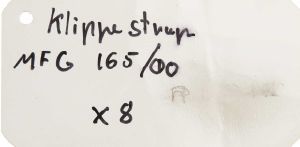 Klippe strup
MFG 165/00
x 8